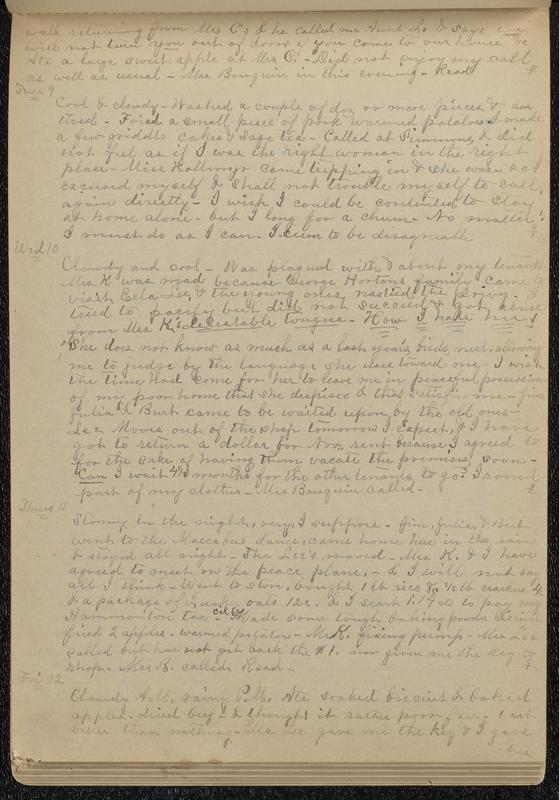 walk returning from Mrs C's & he called me Aunt Lo & says we
will not turn you out of doors if you come to our house &c
Ate a large sweet apple at Mrs C's. Did not enjoy my call
as well as usual - Mrs Bouguin in this evening - Read
Tues 9
Cool & cloudy - Washed a couple of doz or more pieces & am
tired - Fried a small piece of pork warmed potatoes & made
a few griddle cakes & sage tea - Called at Simmons & did
not feel as if I was the right woman in the right
place - Miss came tripping in & she was so I
excused myself & shall not trouble myself to call
again directly - I wish I could be contented to stay
at home alone - but I long for a chum - No matter!
I must do as I can - I seem to be disagreeable
Wed 10
Cloudy and cool - Was plagued with & about my tenants
Mrs K was mad because George Hortons family came to
visit Ella Lee, & the young ones nastied the privy. I
tried to pacify but did not succeed & got abuse
from Mrs K's detestable tongue - How I hate her!
She does not know as much as a last year's birds nest, allowing
me to judge by the language she uses toward me - I wish
the time had come for her to leave me in peaceful possession
of my poor home that she despises & that satisfies me - Jim
Julia & Burt came to be waited upon by the old ones -
Lee Moves out of the shop tomorrow I expect, & I have
got to return a dollar for Nov. rent because I agreed to
for the sake of having them vacate the premises soon -
Can I wait 4½ months for the other tenants to go? I ironed
part of my clothes - Mrs Bouguin called -
Thurs 11
Stormy in the night, very, I suppose - Jim, Julia, & Burt
went to the Maccabee dance, came home here in the rain
& stayed all night - The Lee's moved - Mrs K. & I have
agreed to meet on the peace plane, - & I will not say
all I think - Went to store, bought 1 lb rice 8, ½ lb crackers 4
& a package of Quaker oats 12c. - & I sent 1,14 cts to pay my
Hammonton tax Made some tough baking powder biscuit
fried 2 apples - warmed potatoes - Mr K. fixing pump - Mrs Lee
called but has not got back the $1. nor given me the key to
shop. Mrs B. called. Read -
Fri 12
Cloudy A.M. rainy P.M. Ate soaked biscuit & baked
apples - dried beef - & thought it rather poor fare - but
better than nothing - Ella Lee gave me the key & I gave
her